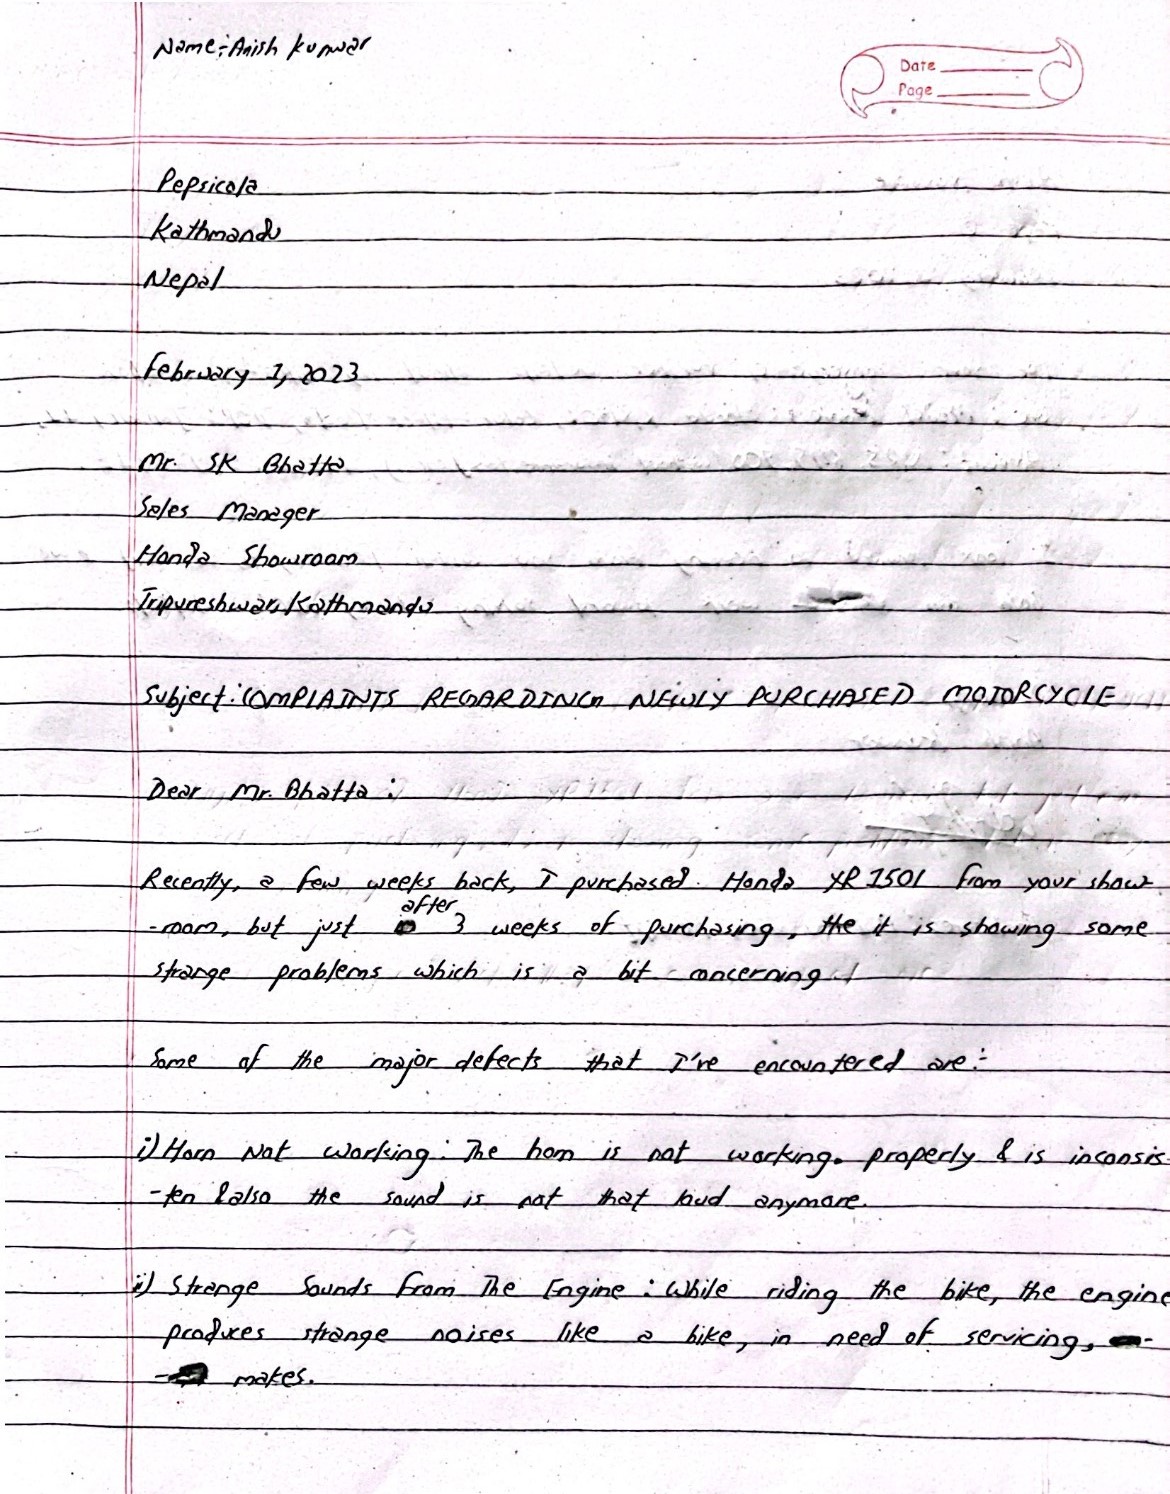 Name:-Anish Kunwar
Date
Page
Pepsicola
Kathmandu
Nepal
February 1, 2023
Mr. SK Bhatta
Sales Manager
Honda Showroom
Tripureshwar, Kathmandu
Subject: COMPLAINTS REGARDING NEWLY PURCHASED MOTORCYCLE
Dear Mr. Bhatta :
Recently, a few weeks back, I purchased Honda XR 150l from your show
after
-room, but just 3 weeks of purchasing, the it is showing some
strange problems which is a bit concerning.
Some of the major defects that I've encountered are:-
i) Horn Not Working: The horn is not working. properly & is inconsis-
-ten & also the sound is not that loud anymore.
ii) Strange Sounds From The Engine : While riding the bike, the engine
produces strange noises like a bike, in need of servicing,
makes.